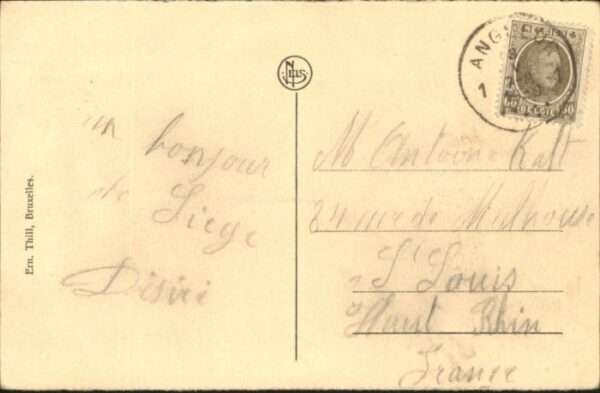 un bonjour
de Liege
Désiré
Ern. Thill, Bruxelles.
NELS
ANG
1
60 BELGIË 60
M. Antoine Katt
24 rue de Mulhouse
St Louis
Haut Rhin
France